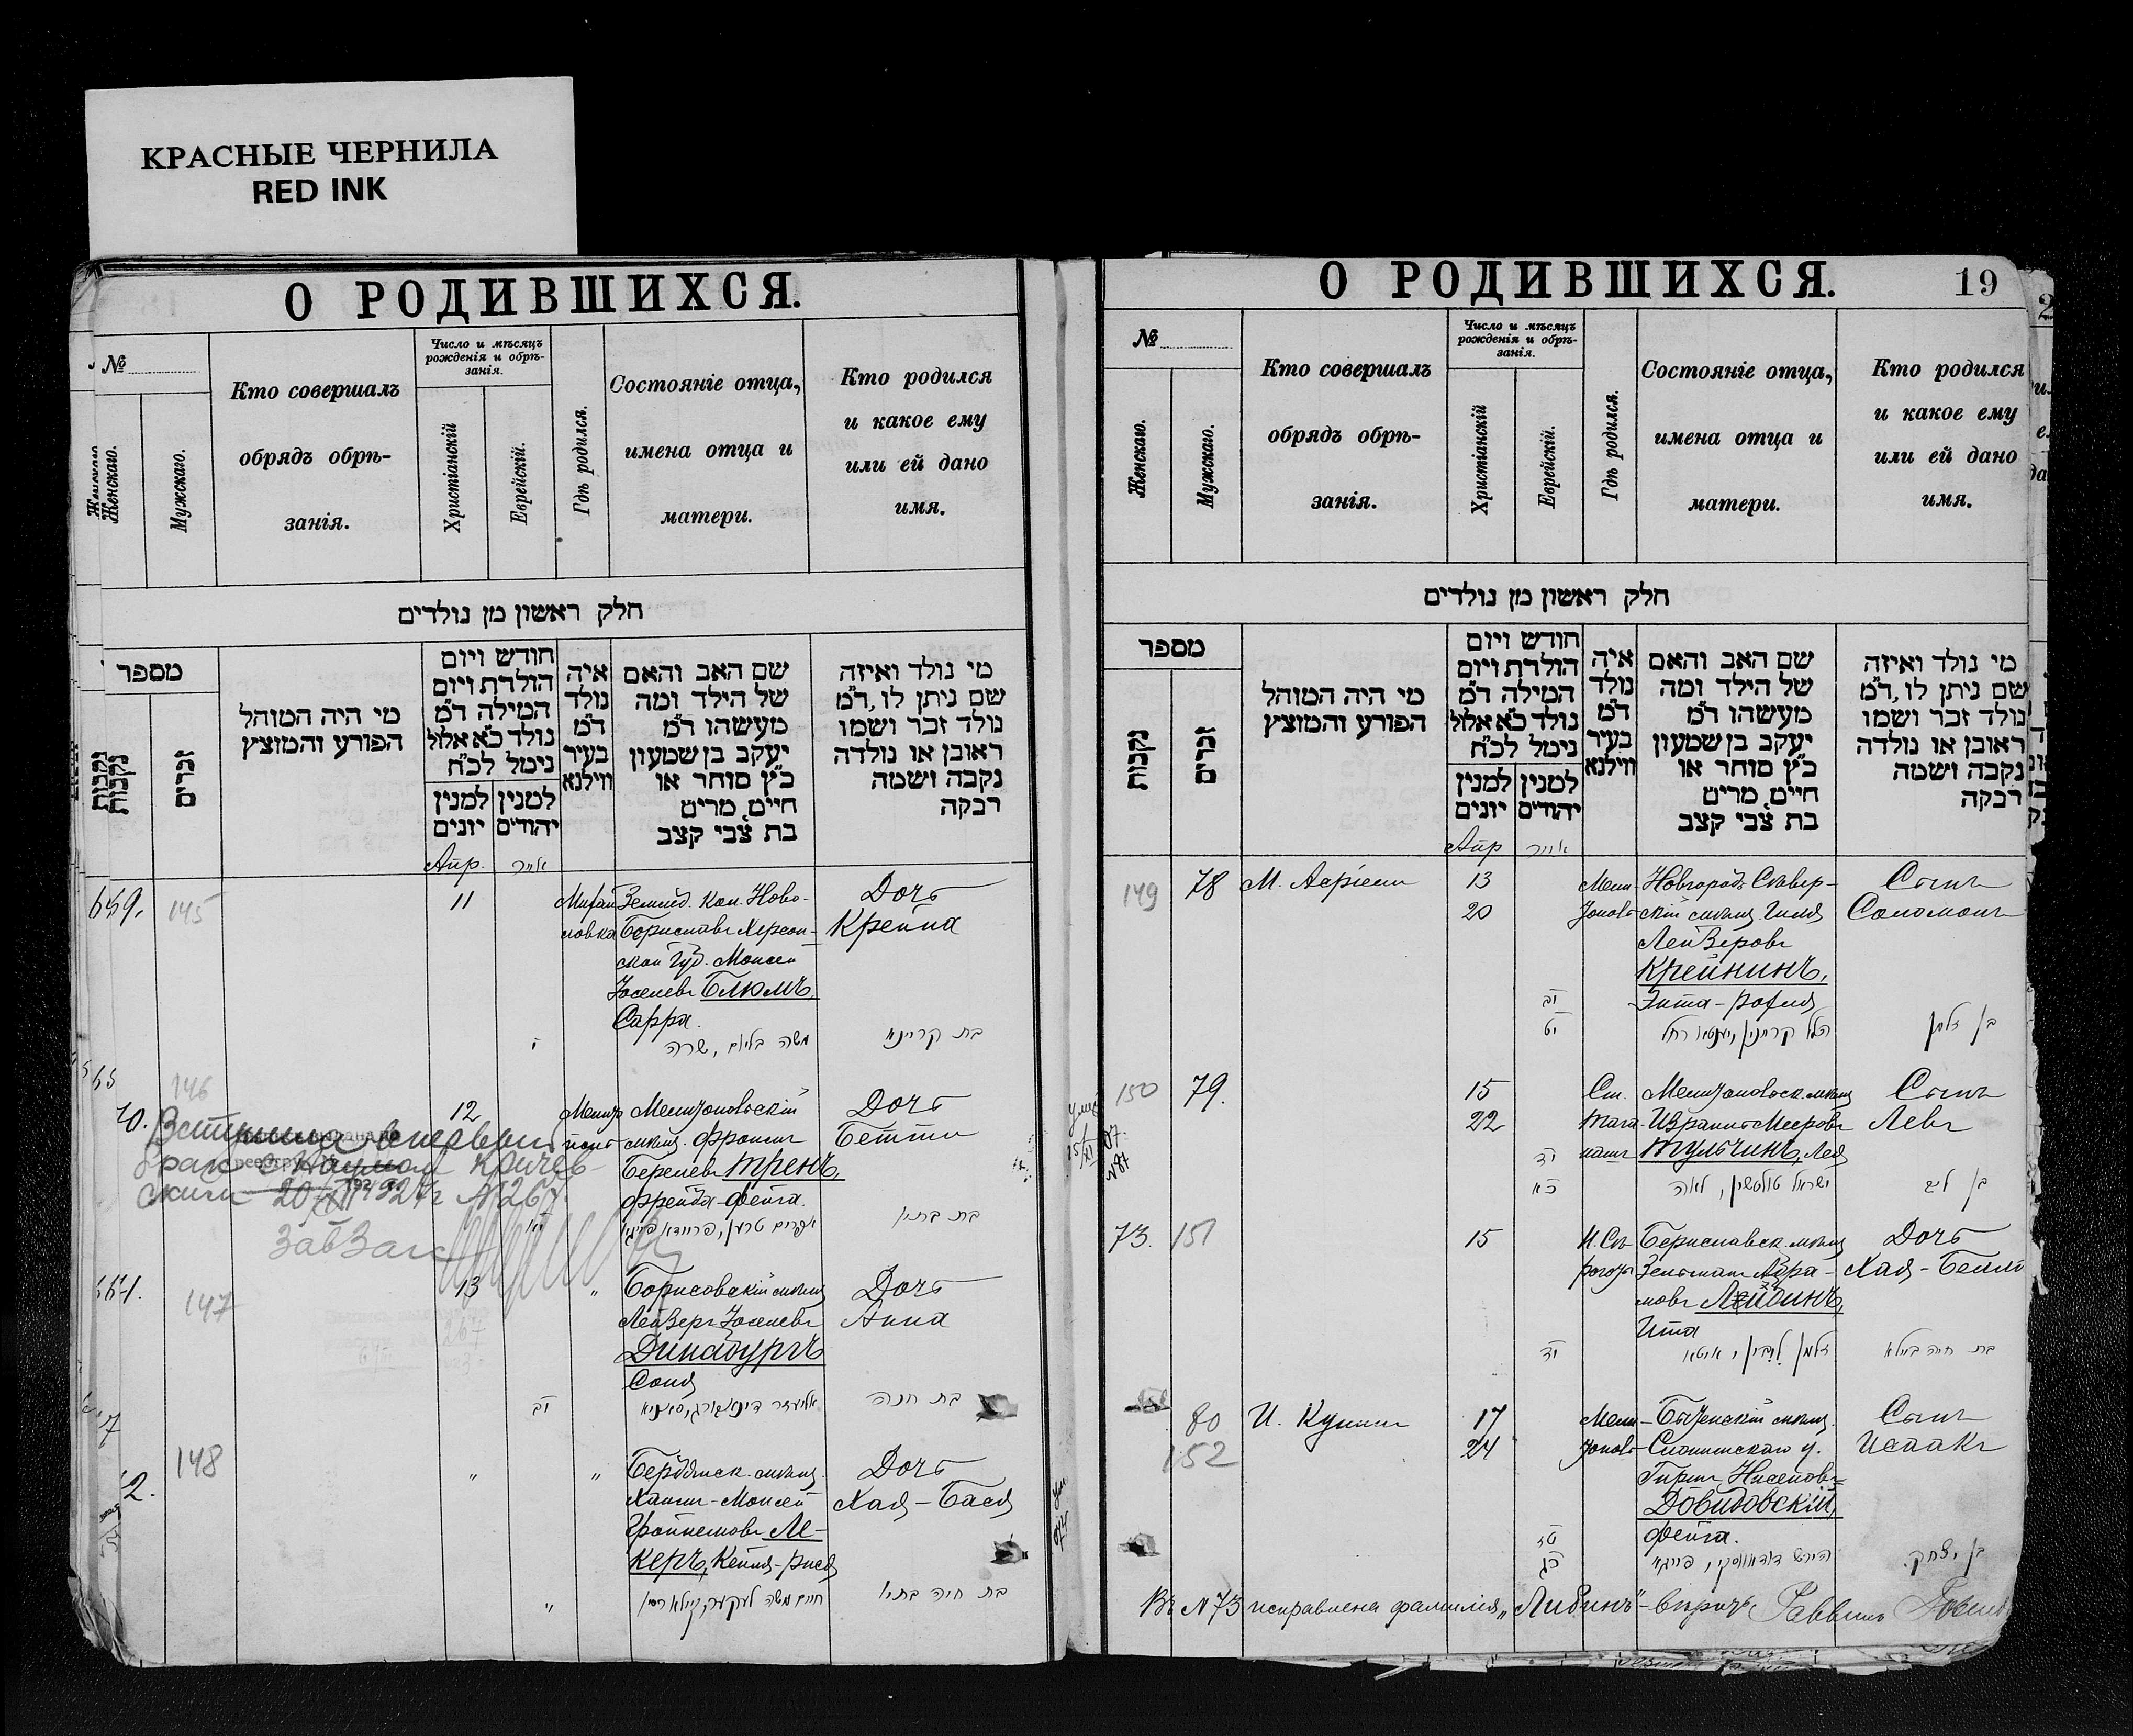 КРАСНЫЕ ЧЕРНИЛА
RED INK
О РОДИВШИХСЯ.
№
Женскаго.
Мужскаго.
Кто совершалъ
обрядъ обрѣ-
занія.
Число и мѣсяцъ
рожденія и обрѣ-
занія.
Христіанскій
Еврейскій.
Гдѣ родился.
Состояніе отца,
имена отца и
матери.
Кто родился
и какое ему
или ей дано
имя.
חלק ראשון מן נולדים
מספר
נקבות
זכרים
מי היה המוהל
הפורע והמוצץ
חודש ויום
הולדת ויום
המילה ד"מ
נולד כ"א אלול
נימל לכ"ח
למנין יונים
למנין יהודים
איה
נולד
ד"מ
בעיר
ווילנא
שם האב והאם
של הילד ומה
מעשהו ד"מ
יעקב בן שמעון
כ"ץ סוחר או
חיים, מרים
בת צבי קצב
מי נולד ואיזה
שם ניתן לו, ד"מ
נולד זכר ושמו
ראובן או נולדה
נקבה ושמה
רבקה
Апр. אייר
69. 145 11 Землед. кол. Ново- Дочь
Бориславъ Херсон- Крейна
ской губ. Моисей
Іоселевъ Блюмъ,
Сарра.
י משה בלום, שרה בת קריינא
146
12 Мелитопольскій Дочь
мѣщ. Фроимъ Бетти
Берелевъ Тренъ,
Фрейда-Фейга.
אפרים טרען, פריידא פייגא בת בתי'
Вступила в первый
брак с Наумом Кричев-
ским 20/XII 1927г №267.
ЗавЗагс
147 13 " Борисовскій мѣщ Дочь
Лейзеръ Іоселевъ Анна
Динабургъ
Соня
יב אליעזר דינאבורג, סאניא בת חנה
148
" " Бердянск. мѣщ. Дочь
Хаимъ-Моисей Хая-Бася
Ле-
керъ, Кейля-
" חיים משה לעקער, בת חיה בתי'
О РОДИВШИХСЯ. 19
№
Женскаго.
Мужскаго.
Кто совершалъ
обрядъ обрѣ-
занія.
Число и мѣсяцъ
рожденія и обрѣ-
занія.
Христіанскій
Еврейскій.
Гдѣ родился.
Состояніе отца,
имена отца и
матери.
Кто родился
и какое ему
или ей дано
имя.
חלק ראשון מן נולדים
מספר
נקבות
זכרים
מי היה המוהל
הפורע והמוצץ
חודש ויום
הולדת ויום
המילה ד"מ
נולד כ"א אלול
נימל לכ"ח
למנין יונים
למנין יהודים
איה
נולד
ד"מ
בעיר
ווילנא
שם האב והאם
של הילד ומה
מעשהו ד"מ
יעקב בן שמעון
כ"ץ סוחר או
חיים, מרים
בת צבי קצב
מי נולד ואיזה
שם ניתן לו, ד"מ
נולד זכר ושמו
ראובן או נולדה
נקבה ושמה
רבקה
Апр אייר
149 78 13 Новгородъ Сѣвер- Сынъ
20 скій мѣщ. Гилл Соломонъ
Лейзеровъ
Крейнинъ,
יב Энта-
יט הלל קריינין, יענטא רחל בן זלמן
150 79. 15 Ст. Мелитопольск. мѣщ Сынъ
22 Израиль Мееровъ Левъ
Тульчинъ, Лея
יד
כא ישראל טולטשין, לאה בן לב
73. 151 15 Бериславск. мѣщ Дочь
Зельманъ Абра- Хая-Бейла
мовъ Лейбинъ,
Ита
יד זלמן ליבין, איטא בת חיה ביילא
80 17 мѣщ. Сынъ
152 24 Слонимскаго у. Исаакъ
Гиршъ Нисеновъ
Довидовскій,
טז Фейга.
כג הירש דודאווסקי, פייגא בן יצחק.
Въ №73 исправлена фамилія „Либинъ"- вѣрно. Раввинъ